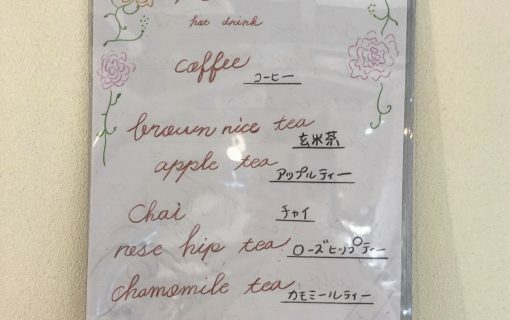 hot drink
coffee コーヒー
brown nice tea 玄米茶
apple tea アップルティー
chai チャイ
rose hip tea ローズヒップティー
chamomile tea カモミールティー